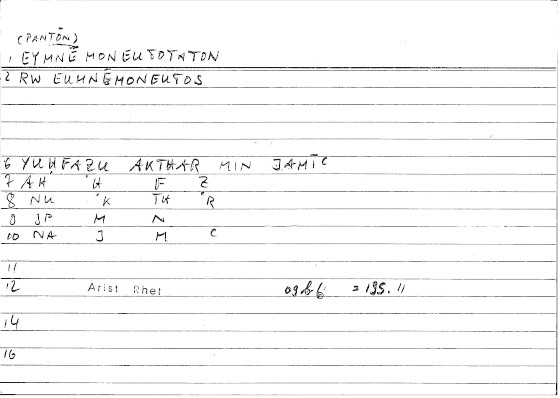 (PANTŌN)
1 EYMNĒMONEUTOTATON
2 RW EUMNĒMONEUTOS
6 YUḤFAẒU AKTHAR MIN JAMĪC
7 AH ḥ F Ẓ
8 NU K TH R
9 JP M N
10 NA J M C
11
12 Arist Rhet = 135. 11
14
16